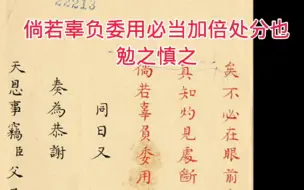 22213
倘若辜负委用必当加倍处分也
勉之慎之
矣不必在眼前
真知灼見處斷
倘若辜負委用
同日又
奏為恭謝
天恩事竊臣父